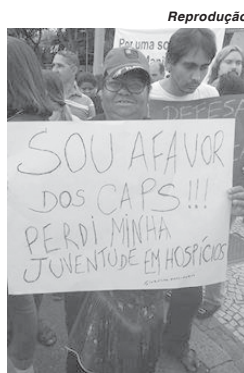 Reprodução
Por uma so
DEFESA
SOU AFAVOR
DOS CAPS!!!
PERDI MINHA
JUVENTUDE EM HOSPÍCIOS